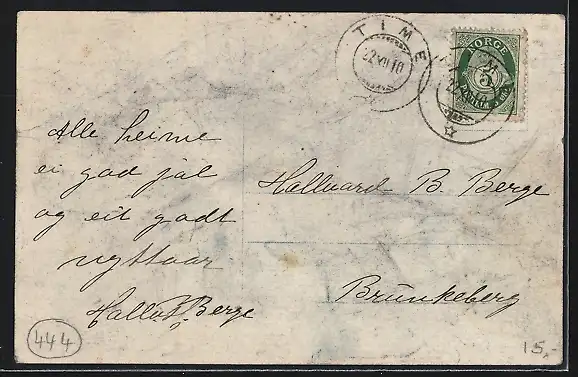 TIME
22 XII 10
NORGE
5
Alle heime
ei god jol
og eit godt
nyttaar
Hallv. Berge
Hallvard B. Berge
Brunkeberg
444
15,-